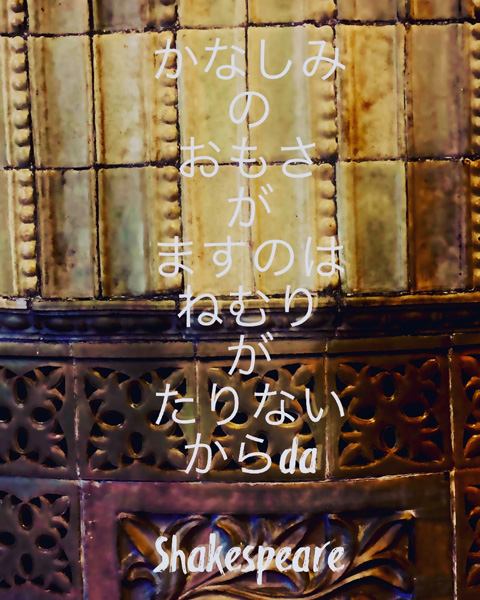 かなしみ
の
おもさ
が
ますのは
ねむり
が
たりない
からda
Shakespeare